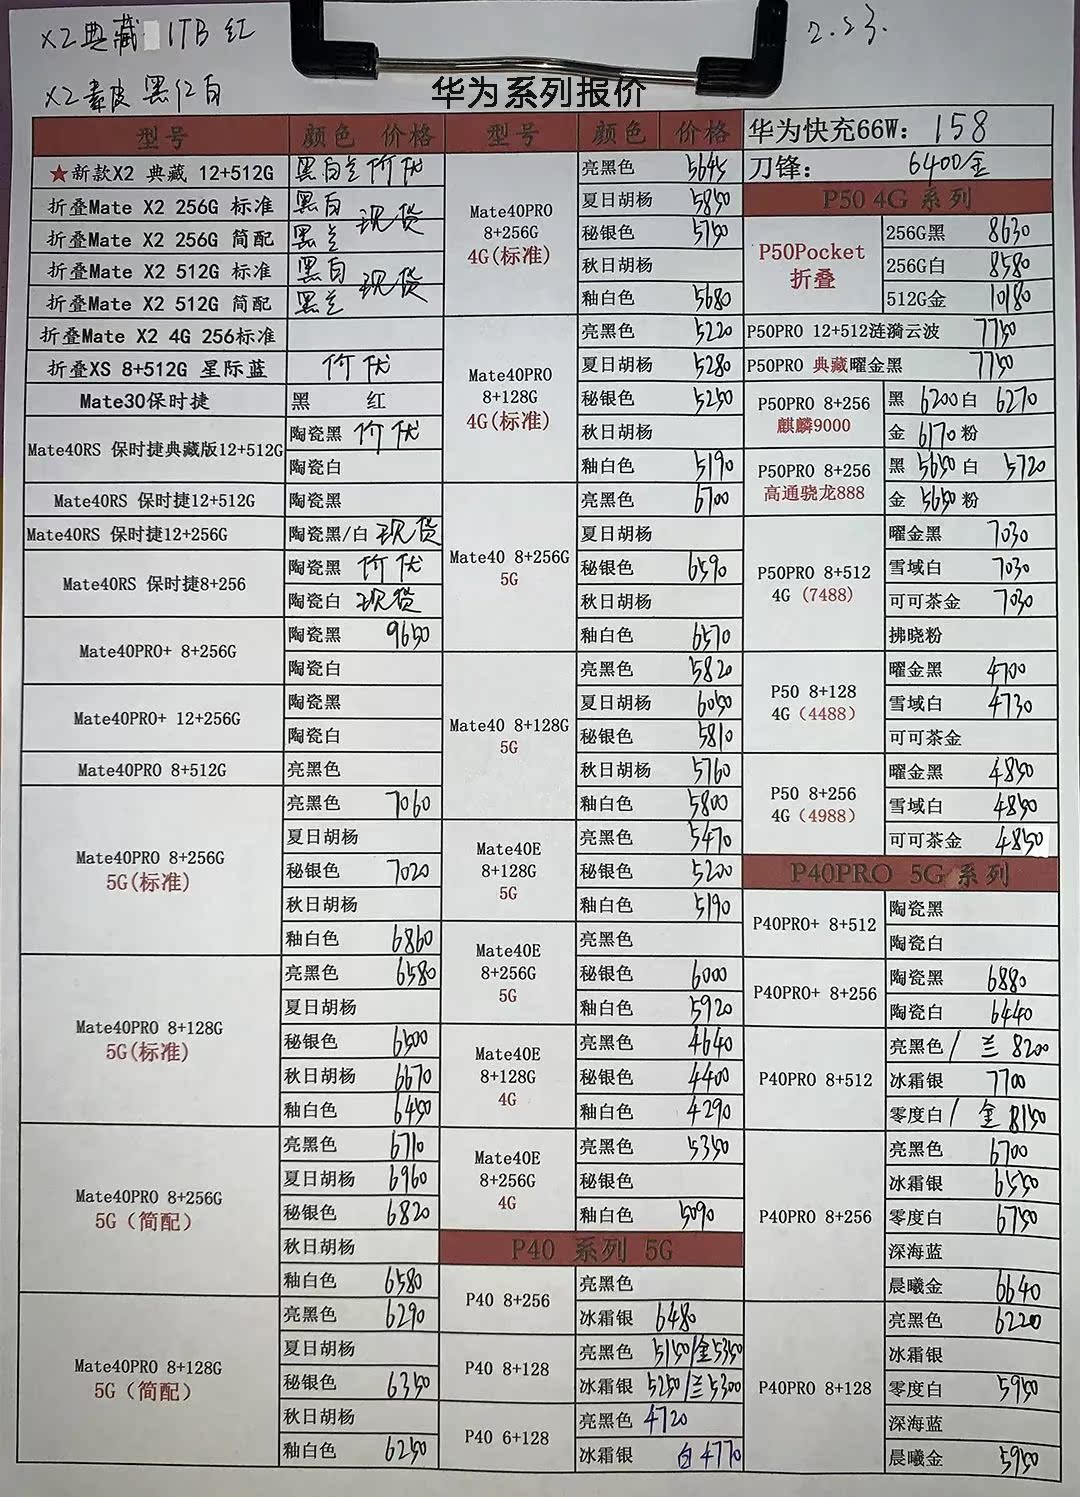 X2典藏 1TB 红
2.23.
X2素皮 黑红白
华为系列报价
型号 颜色 价格
★新款X2 典藏 12+512G 黑白兰 价优
折叠Mate X2 256G 标准 黑白 现货
折叠Mate X2 256G 简配 黑兰
折叠Mate X2 512G 标准 黑白 现货
折叠Mate X2 512G 简配 黑兰
折叠Mate X2 4G 256标准
折叠XS 8+512G 星际蓝 价优
Mate30保时捷 黑 红
Mate40RS 保时捷典藏版12+512G
陶瓷黑 价优
陶瓷白
Mate40RS 保时捷12+512G 陶瓷黑
Mate40RS 保时捷12+256G 陶瓷黑/白 现货
Mate40RS 保时捷8+256
陶瓷黑 价优
陶瓷白 现货
Mate40PRO+ 8+256G
陶瓷黑 9650
陶瓷白
Mate40PRO+ 12+256G
陶瓷黑
陶瓷白
Mate40PRO 8+512G 亮黑色
Mate40PRO 8+256G
5G(标准)
亮黑色 7060
夏日胡杨
秘银色 7020
秋日胡杨
釉白色 6860
Mate40PRO 8+128G
5G(标准)
亮黑色 6580
夏日胡杨
秘银色 6500
秋日胡杨 6670
釉白色 6450
Mate40PRO 8+256G
5G（简配）
亮黑色 6710
夏日胡杨 6960
秘银色 6820
秋日胡杨
釉白色 6580
Mate40PRO 8+128G
5G（简配）
亮黑色 6290
夏日胡杨
秘银色 6350
秋日胡杨
釉白色 6250
型号 颜色 价格
Mate40PRO
8+256G
4G(标准)
亮黑色 5645
夏日胡杨 5850
秘银色 5750
秋日胡杨
釉白色 5680
Mate40PRO
8+128G
4G(标准)
亮黑色 5220
夏日胡杨 5280
秘银色 5250
秋日胡杨
釉白色 5190
Mate40 8+256G
5G
亮黑色 6700
夏日胡杨
秘银色 6590
秋日胡杨
釉白色 6570
Mate40 8+128G
5G
亮黑色 5820
夏日胡杨 6050
秘银色 5810
秋日胡杨 5760
釉白色 5800
Mate40E
8+128G
5G
亮黑色 5470
秘银色 5200
釉白色 5190
Mate40E
8+256G
5G
亮黑色
秘银色 6000
釉白色 5920
Mate40E
8+128G
4G
亮黑色 4640
秘银色 4400
釉白色 4290
Mate40E
8+256G
4G
亮黑色 5350
秘银色
釉白色 5090
P40 系列 5G
P40 8+256
亮黑色
冰霜银 6480
P40 8+128
亮黑色 5150/金5350
冰霜银 5250/兰5300
P40 6+128
亮黑色 4720
冰霜银 白 4770
华为快充66W： 158
刀锋： 6400金
P50 4G 系列
P50Pocket
折叠
256G黑 8630
256G白 8580
512G金 10180
P50PRO 12+512涟漪云波 7750
P50PRO 典藏曜金黑 7750
P50PRO 8+256
麒麟9000
黑 6200 白 6270
金 6170 粉
P50PRO 8+256
高通骁龙888
黑 5650 白 5720
金 5650 粉
P50PRO 8+512
4G (7488)
曜金黑 7030
雪域白 7030
可可茶金 7030
拂晓粉
P50 8+128
4G（4488）
曜金黑 4700
雪域白 4730
可可茶金
P50 8+256
4G（4988）
曜金黑 4850
雪域白 4850
可可茶金 4850
P40PRO 5G 系列
P40PRO+ 8+512
陶瓷黑
陶瓷白
P40PRO+ 8+256
陶瓷黑 6880
陶瓷白 6440
P40PRO 8+512
亮黑色/ 兰 8200
冰霜银 7700
零度白/ 金 8150
P40PRO 8+256
亮黑色 6700
冰霜银 6550
零度白 6750
深海蓝
晨曦金 6640
P40PRO 8+128
亮黑色 6220
冰霜银
零度白 5950
深海蓝
晨曦金 5950